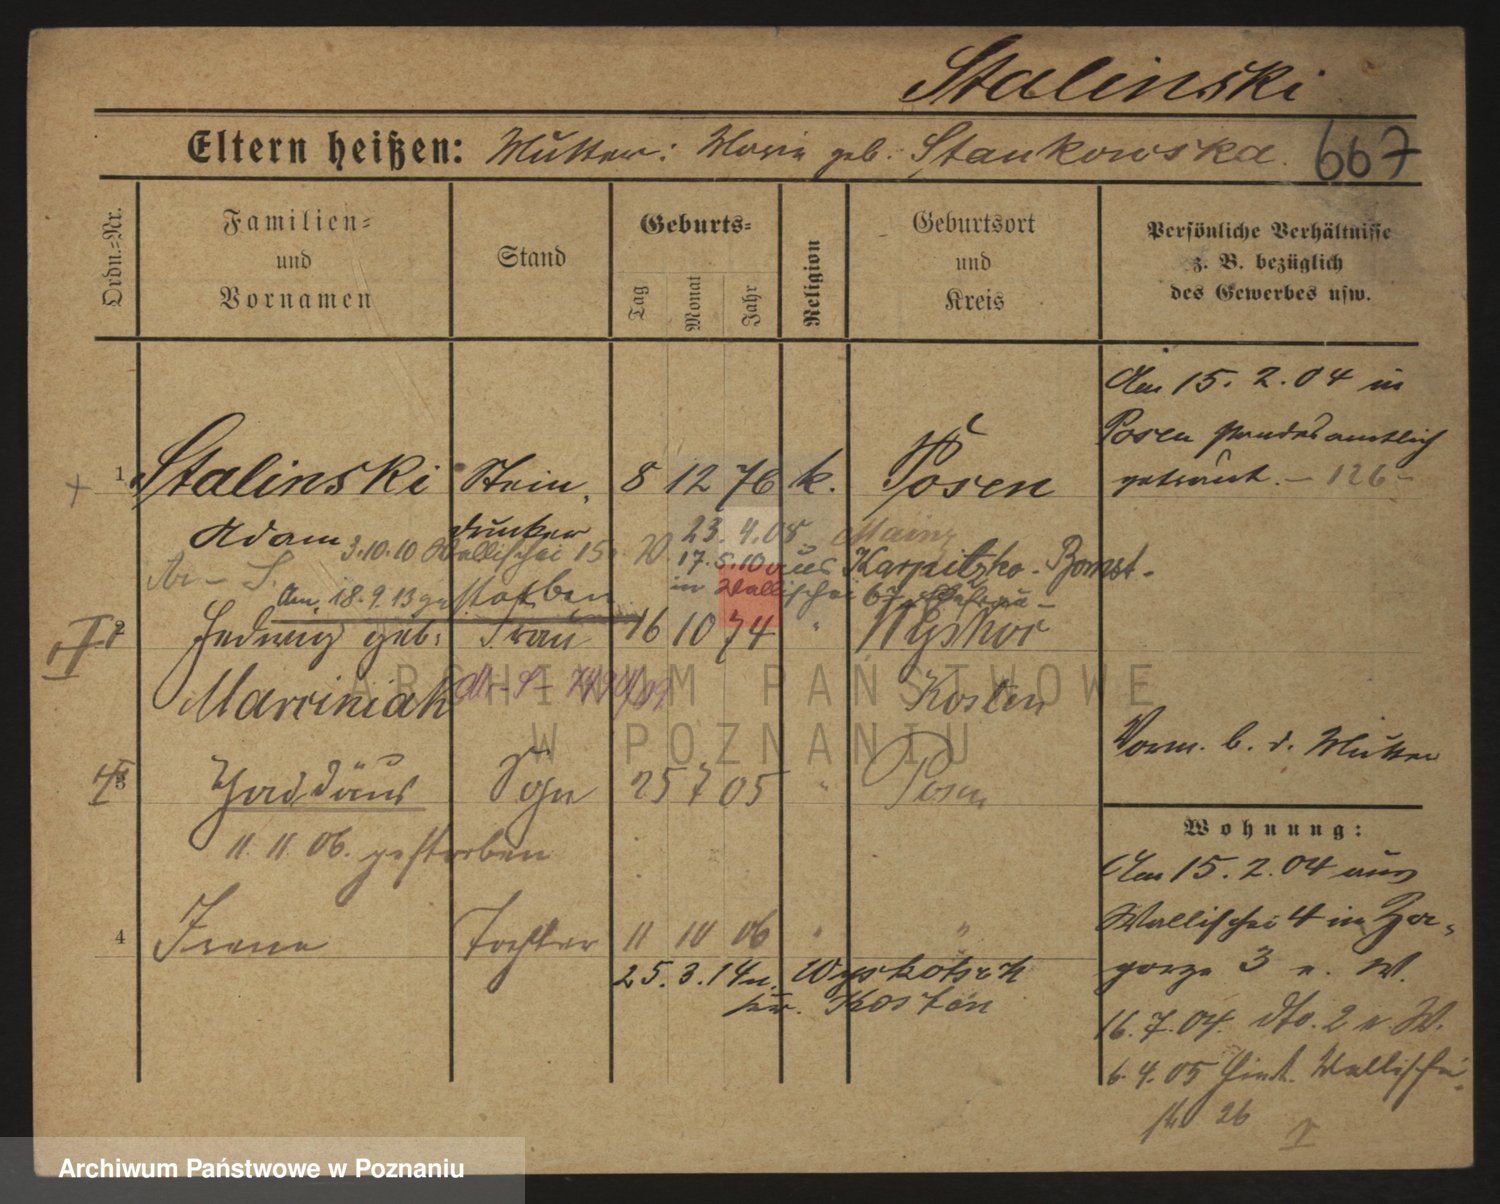 Stalinski
Eltern heißen: Mutter: Marie geb. Stankowska. 667
Ordn.=Nr.
Familien=
und
Vornamen
Stand
Geburts=
Tag
Monat
Jahr
Religion
Geburtsort
und
Kreis
Persönliche Verhältnisse
z. B. bezüglich
des Gewerbes usw.
Am 15. 2. 04 in
Posen standesamtlich
getraut. – 126 –
1 Stalinski Stein, 8 12 76 k. Posen
Adam drucker 23. 4. 08 Mainz
3.10.10 Wallischei 15 17. 5. 10 aus Karpitzko - Bomst.
Am 18. 9. 13 gestorben in Wallischei 67
2 Hedwig geb. Frau 16 10 74 "
Marciniak Kosten
Vorm. b. d. Mutter
3 Thaddäus Sohn 25 7 05 " Posen
11. 11. 06. gestorben
4 Irene Tochter 11 10 06 " "
25. 3. 14 n. Wyskotsch
kr. Kosten
Wohnung:
Am 15. 2. 04 aus
Wallischei 4 in Za-
gorze 3 n. W.
16. 7. 04. dto. 2 n. W.
6. 4. 05 Wallischei
26
ARCHIWUM PAŃSTWOWE
W POZNANIU
Archiwum Państwowe w Poznaniu